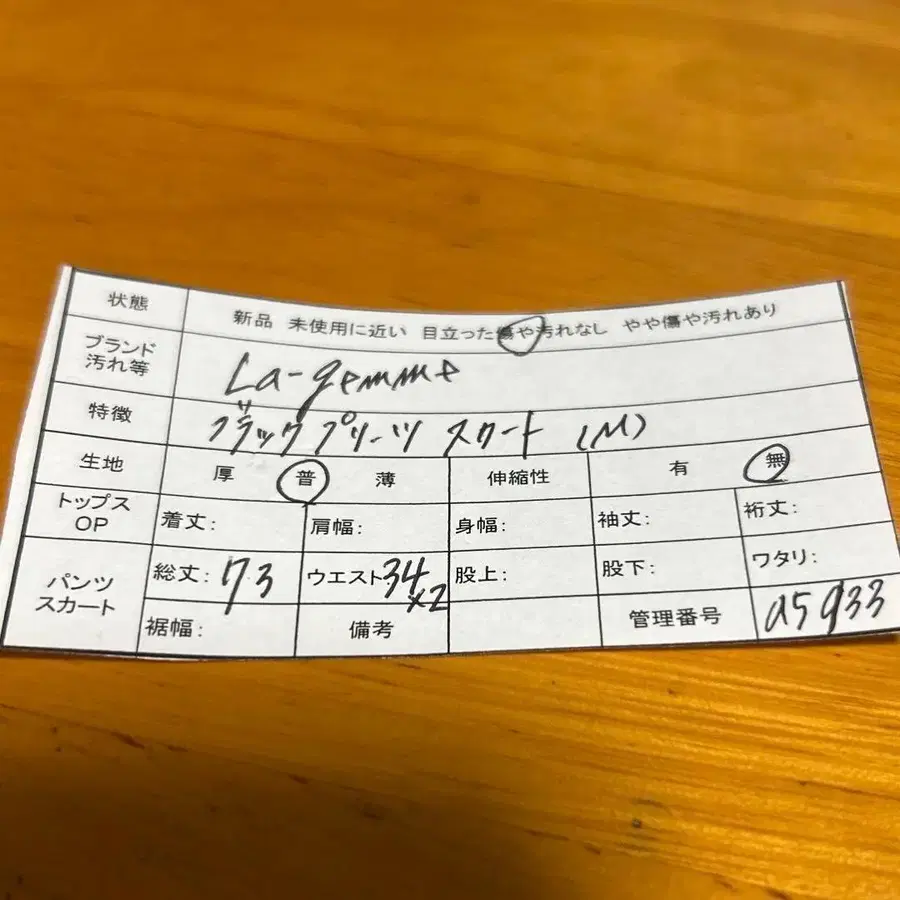 状態 新品 未使用に近い 目立った傷や汚れなし やや傷や汚れあり
ブランド
汚れ等 La-gemme
特徴 ブラックプリーツ スカート (M)
生地 厚 普 薄 伸縮性 有 無
トップス
OP 着丈: 肩幅: 身幅: 袖丈: 裄丈:
パンツ
スカート 総丈: 73 ウエスト 34×2 股上: 股下: ワタリ:
裾幅: 備考 管理番号 a5933